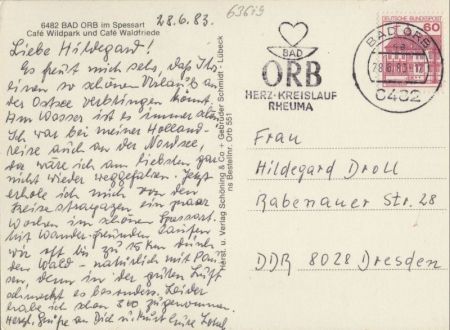 6482 BAD ORB im Spessart
Café Wildpark und Café Waldfriede
28.6.83.
63619
Liebe Hildegard!
Es freut mich sehr, daß Ihr
einen so schönen Urlaub an
der Ostsee verbringen könnt.
Am Wasser ist es immer
Ich war bei meiner Holland-
reise auch an der Nordsee,
da wäre ich am liebsten gar
nicht wieder weggefahren. Jetzt
erhole ich mich von den
Reisestrapazen ein paar
Wochen im schönen Spessart.
Mit Wanderfreunden laufen
wir oft bis zu 15 km durch
den Wald - natürlich mit Pau-
sen, denn in der guten Luft
schmeckt es besonders. Leider
habe ich schon 3 zugenommen.
Herzl. Grüße an Dich u. Kurt
Herst. u. Verlag Schöning & Co + Gebrüder Schmidt - Lübeck
Bestellnr. Orb 551
BAD
ORB
HERZ-KREISLAUF
RHEUMA
BAD ORB
28.6.83-12
6482
DEUTSCHE BUNDESPOST
60
Frau
Hildegard Droll
Rabenauer Str. 28
DDR 8028 Dresden